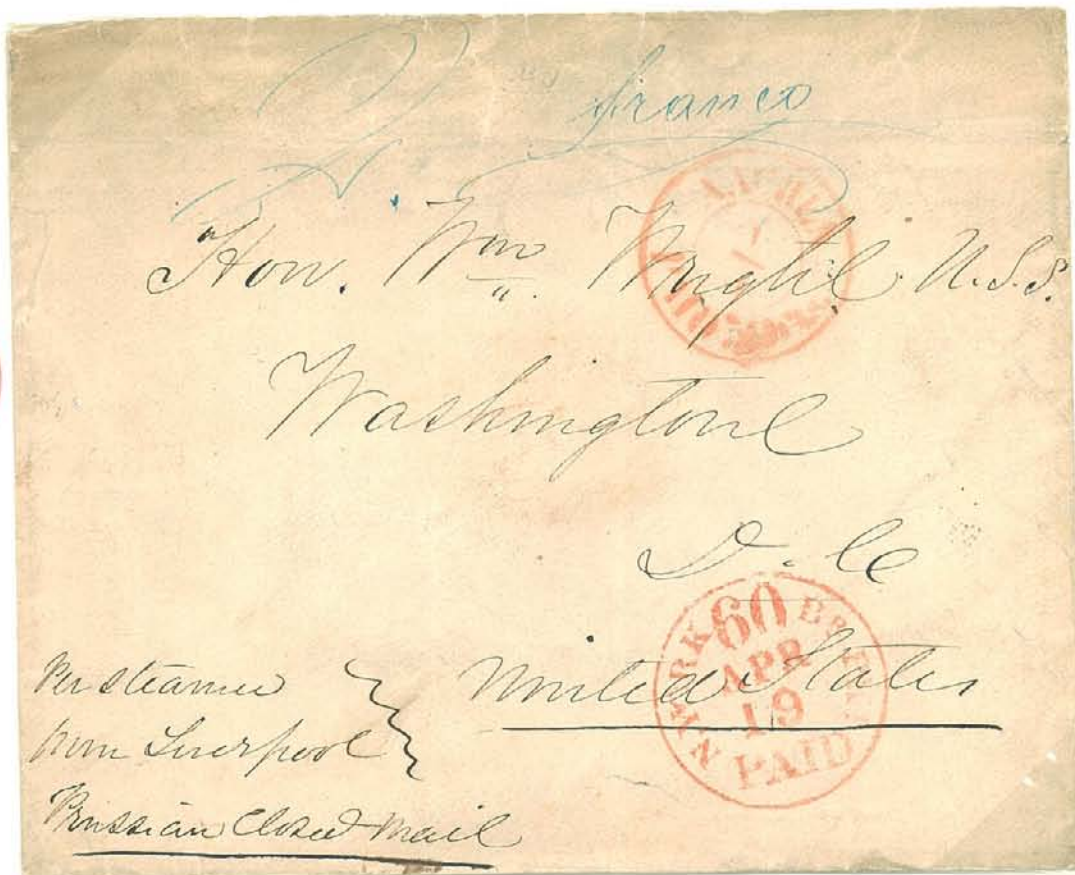 franco
Hon. Wm. Wright U.S.S.
Washington
D. C
United States
Per steamer
from Liverpool
Prussian Closed Mail
60
APR
19
PAID